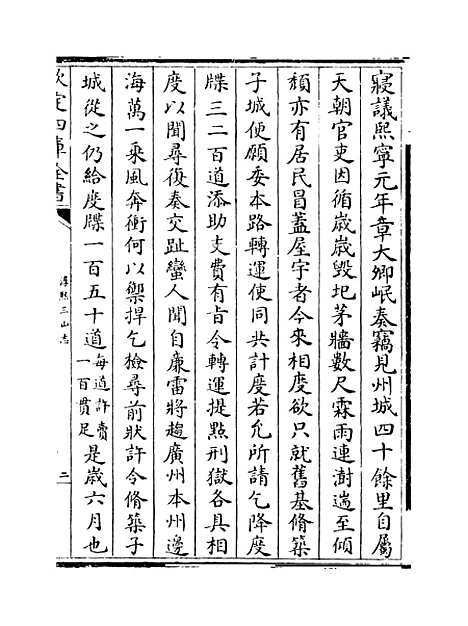 寢議熙寧元年章大卿岷奏竊見州城四十餘里自屬
天朝官吏因循歲歲毀圯茅牆數尺霖雨連澍遄至傾
頽亦有居民昌蓋屋宇者今來相度欲只就舊基脩築
子城便願委本路轉運使同共計度若允所請乞降度
牒三二百道添助支費有旨令轉運提點刑獄各具相
度以聞尋復奏交趾蠻人聞自廉雷將趨廣州本州邊
海萬一乗風奔衝何以禦捍乞檢尋前狀許令脩築子
城從之仍給度牒一百五十道每道許賣一百貫足是歲六月也
欽定四庫全書
淳熙三山志
二